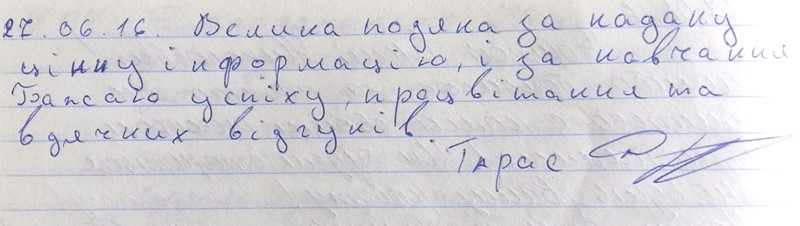 27.06.16. Велика подяка за надану
цінну інформацію, і за навчання
Бажаю успіху, процвітання та
вдячних відгуків.
Тарас